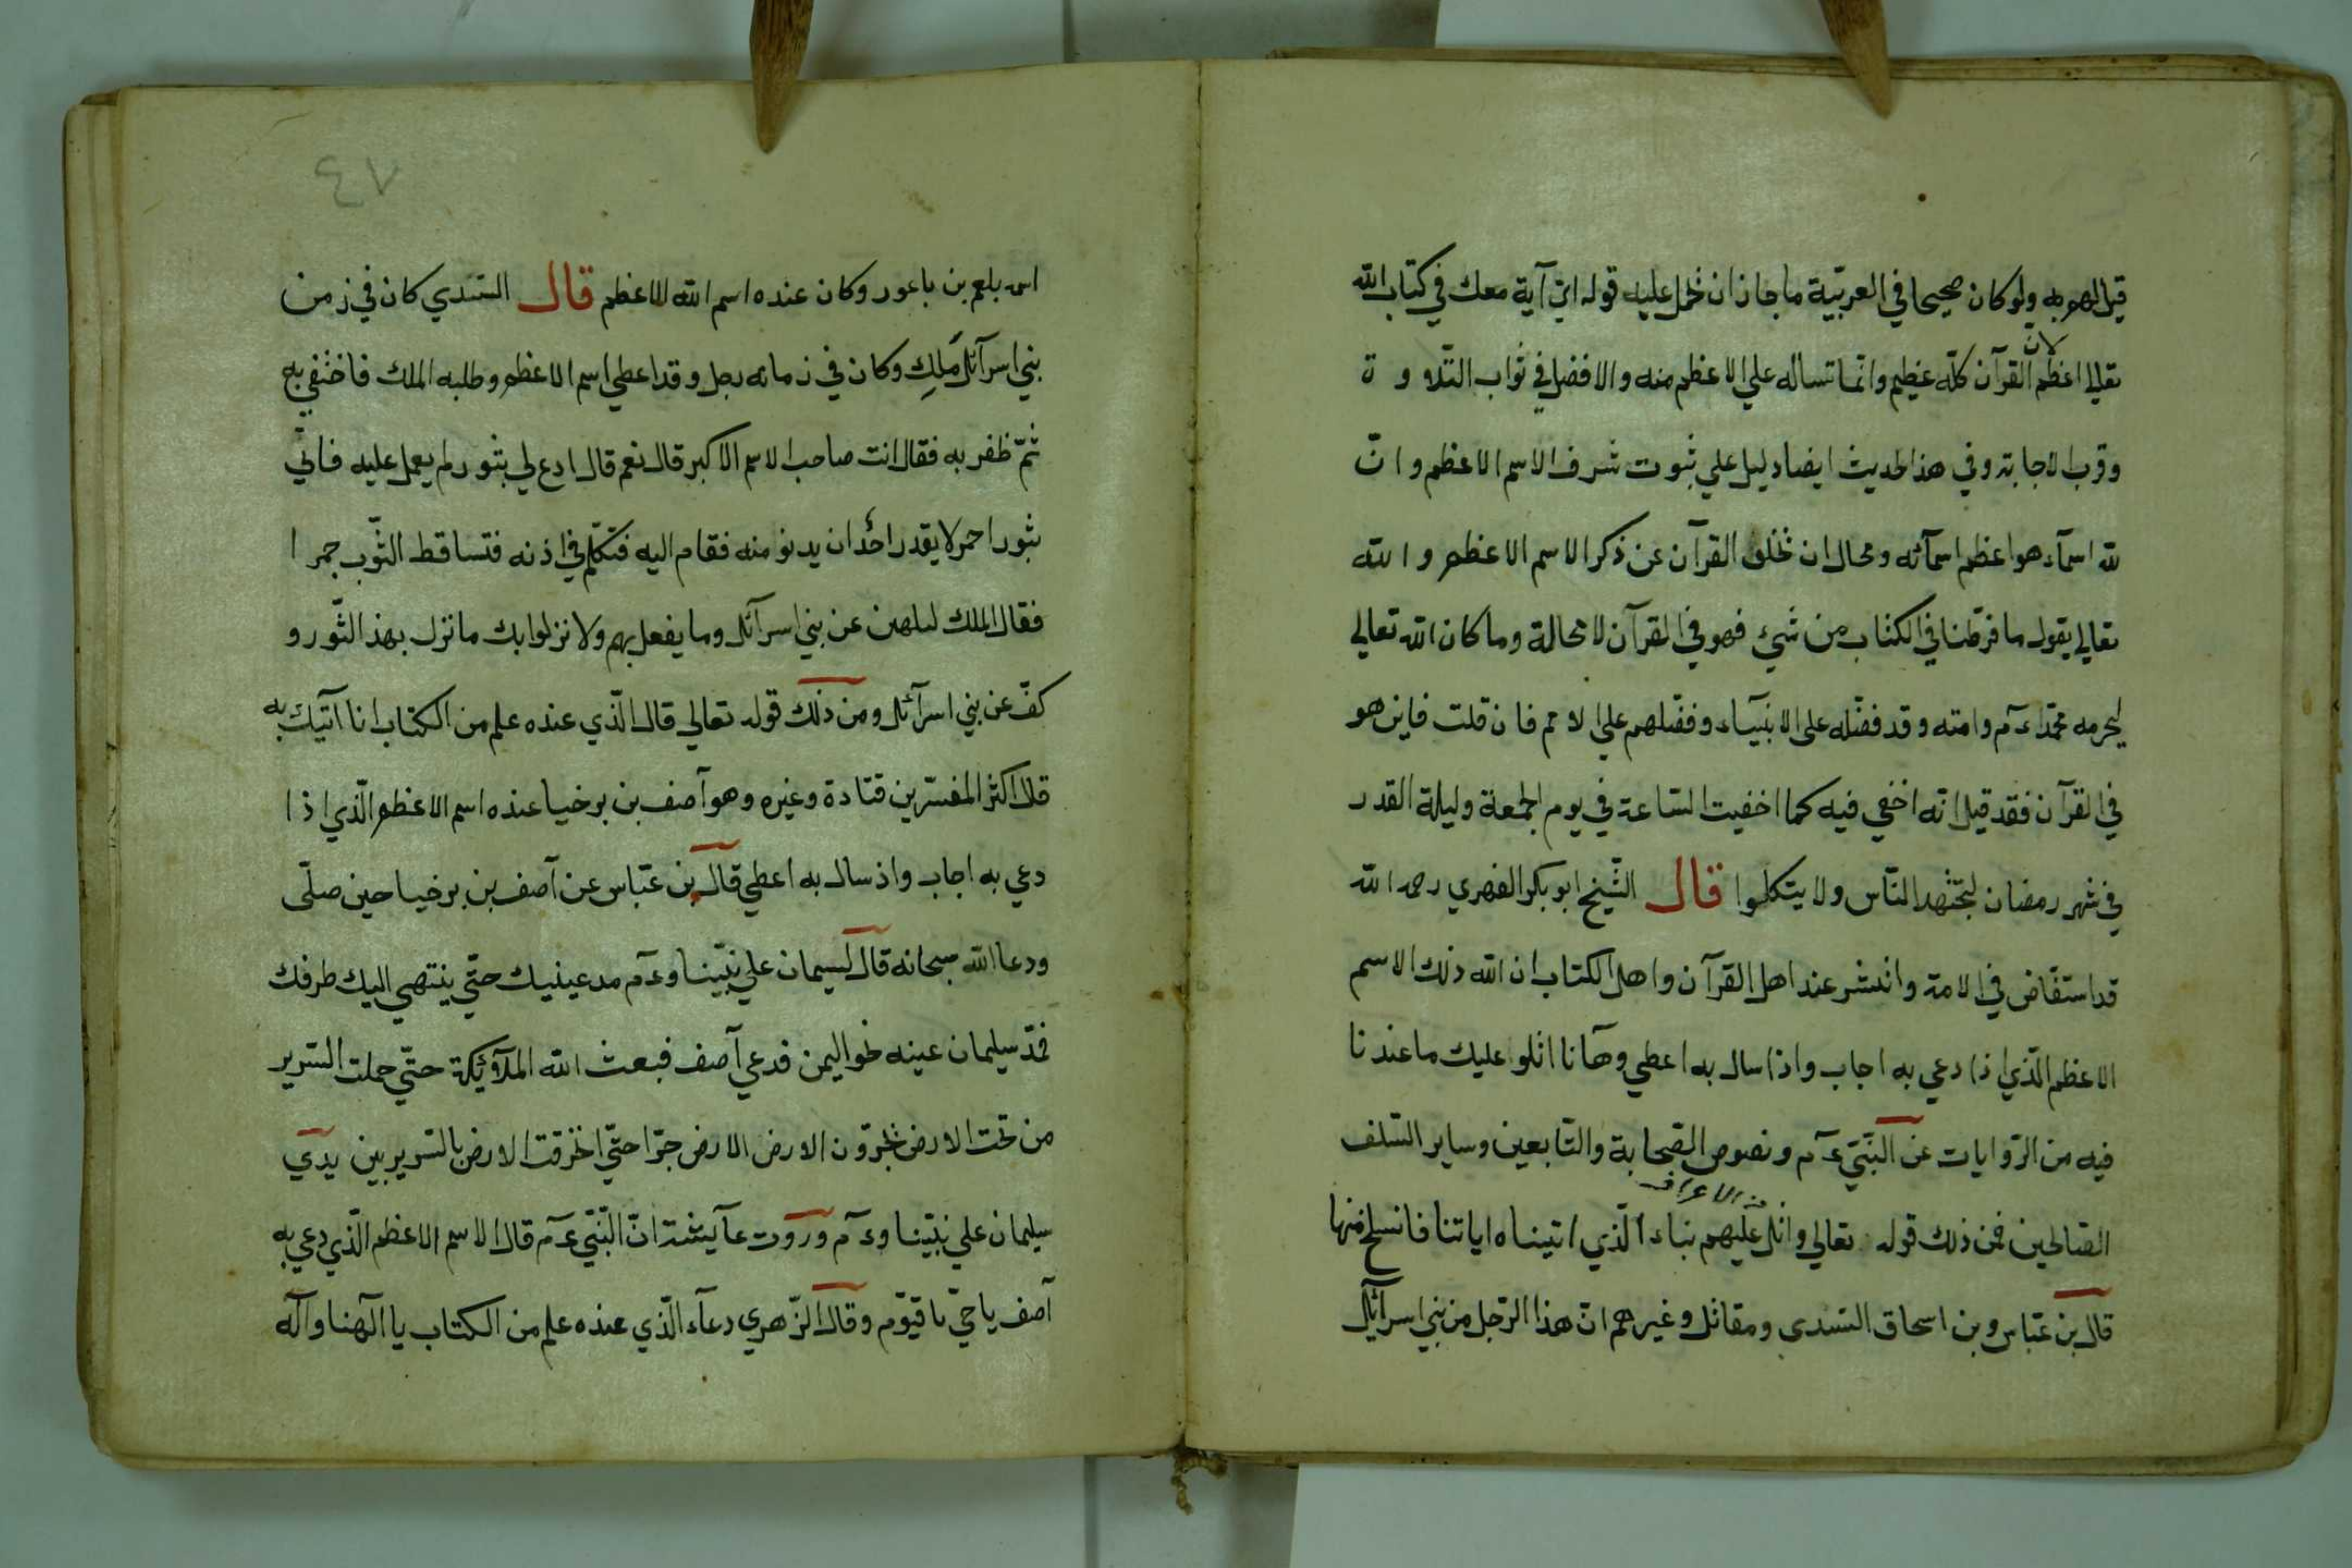 قيل لهم به ولو كان صحيحا في العربيّة ما جاز ان نحمل عليه قوله ايّ آية معك في كتاب الله
لان
تعالي اعظم القرآن كلّه عظيم وانّما تساله علي الاعظم منه والافضل في ثواب التّلاوة
وقرب الاجابة وفي هذا الحديث ايضا دليل علي ثبوت شرف الاسم الاعظم وانّ
لله اسمآء هو اعظم اسمآئه ومحال ان تخلو القرآن عن ذكر الاسم الاعظم والله
تعالي يقول ما فرّطنا في الكتاب من شيء فهو في القرآن لا محالة وما كان الله تعالي
ليحرمه محمّدا ءم وامته وقد فضّله علي الانبيآء وفضّلهم علي الامم فان قلت فاين هو
في القرآن فقد قيل انّه اخفي فيه كما اخفيت السّاعة في يوم الجمعة وليلة القدر
في شهر رمضان ليجتهد النّاس ولا يتكلوا قال الشّيخ ابو بكر الفهري رحمه الله
قد استفاض في الامة وانتشر عند اهل القرآن واهل الكتاب ان الله ذلك الاسم
الاعظم الّذي اذا دعي به اجاب واذا سال به اعطي وهآنا اتلوا عليك ما عندنا
فيه من الرّوايات عن النّبيّ ءم ونصوص الصّحابة والتّابعين وساير السّلف
من الاعراف
الصّالحين فمن ذلك قوله تعالي واتل عليهم نباء الّذي اتيناه اياتنا فانسلخ منها
قال بن عبّاس وبن اسحاق السّدى ومقاتل وغيرهم انّ هذا الرّجل من بني اسرآئل
٤٧
اسمه بلعم بن باعور وكان عنده اسم الله الاعظم قال السّدي كان في زمن
بني اسرآئل مَلِكِ وكان في زمانه رجل وقد اعطي اسم الاعظم وطلبه الملك فاختفي به
ثمّ ظفر به فقال انت صاحب الاسم الاكبر قال نعم قال ادع لي بثور لم يعمل عليه فاتي
بثور احمر لا يقدر احدٌ ان يدنو منه فقام اليه فتكلّم في اذنه فتساقط الثّوب جمرا
فقال الملك عن بني اسرآئل وما يفعل بهم ولا نزلوا بك ما نزل بهذ الثّور و
كفّ عن بني اسرآئل ومن ذلك قوله تعالي قال الّذي عنده علم من الكتاب انا آتيك به
قال اكثر المفسّرين قتادة وغيره وهو آصف بن برخيا عنده اسم الاعظم الّذي اذا
دعي به اجاب واذ سال به اعطي قال بن عبّاس عن آصف بن برخيا حين صلّى
ودعا الله سبحانه قال لسيمان علي نبيّنا وءم مد عينيك حتّي ينتهي اليك طرفك
فمدّ سيلمان عينه نحو اليمن فدعي آصف فبعث الله الملآئيكة حتّي حملت السّرير
من تحت الارض يخبرّون الارض الارض جرّا حتّي اخترقت الارض بالسّرير بين يدي
سيلمان علي نبيّنا وءم وروت عآيشة انّ النّبيّ ءم قال الاسم الاعظم الّذي دعي به
آصف يا حيّ يا قيّوم وقال الزّهري دعآء الّذي عنده علم من الكتاب يا آلهنا وآله